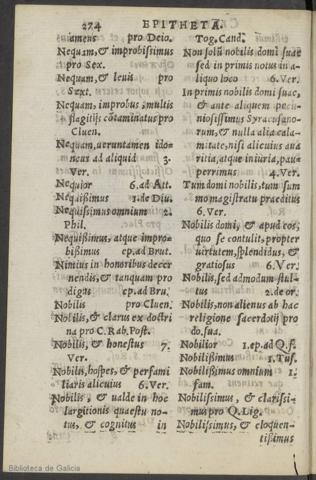 274 EPITHETA.
amens pro Deio.
Nequam, & improbissimus
pro Sex.
Nequam, & leuis pro
Sext.
Nequam, improbus, multis
flagitijs cōtaminatus pro
Cluen.
Nequam, ueruntamen ido-
neus ad aliquid 3.
Ver.
Nequior 6. ad Att.
Nequißimus 1. de Diu.
Nequissimus omnium 2.
Phil.
Nequißimus, atque impro-
bißimus ep. ad Brut.
Nimius in honoribus decer
nendis, & tanquam pro
digus ep. ad Bru.
Nobilis pro Cluen.
Nobilis, & clarus ex doctri
na pro C. Rab. Post.
Nobilis, & honestus 7.
Ver.
Nobilis, hospes, & perfami
liaris alicuius 6. Ver.
Nobilis, & ualde in hoc
largitionis quaestu no-
tus, & cognitus in
Tog. Cand.
Non solū nobilis domi suae
sed in primis notus in a-
liquo loco 6. Ver.
In primis nobilis domi suae,
& ante aliquem pecu-
niosissimus Syracusano-
rum, & nulla alia cala-
mitate, nisi alicuius aua
ritia, atque iniuria, pau-
perrimus 4. Ver.
Tum domi nobilis, tum sum
mo magistratu praeditus
6. Ver.
Nobilis domi, & apud eos,
quo se contulit, propter
uirtutem, splendidus, &
gratiosus 6. Ver.
Nobilis, sed admodum stul-
tus 2. de or.
Nobilis, non alienus ab hac
religione sacerdotij pro
do. sua.
Nobilior 1. ep. ad Q. f.
Nobilißimus 1. Tus.
Nobilißimus omnium 1.
fam.
Nobilissimus, & clarissi-
mus pro Q. Lig.
Nobilissimus, & eloquen-
tißimus
Biblioteca de Galicia